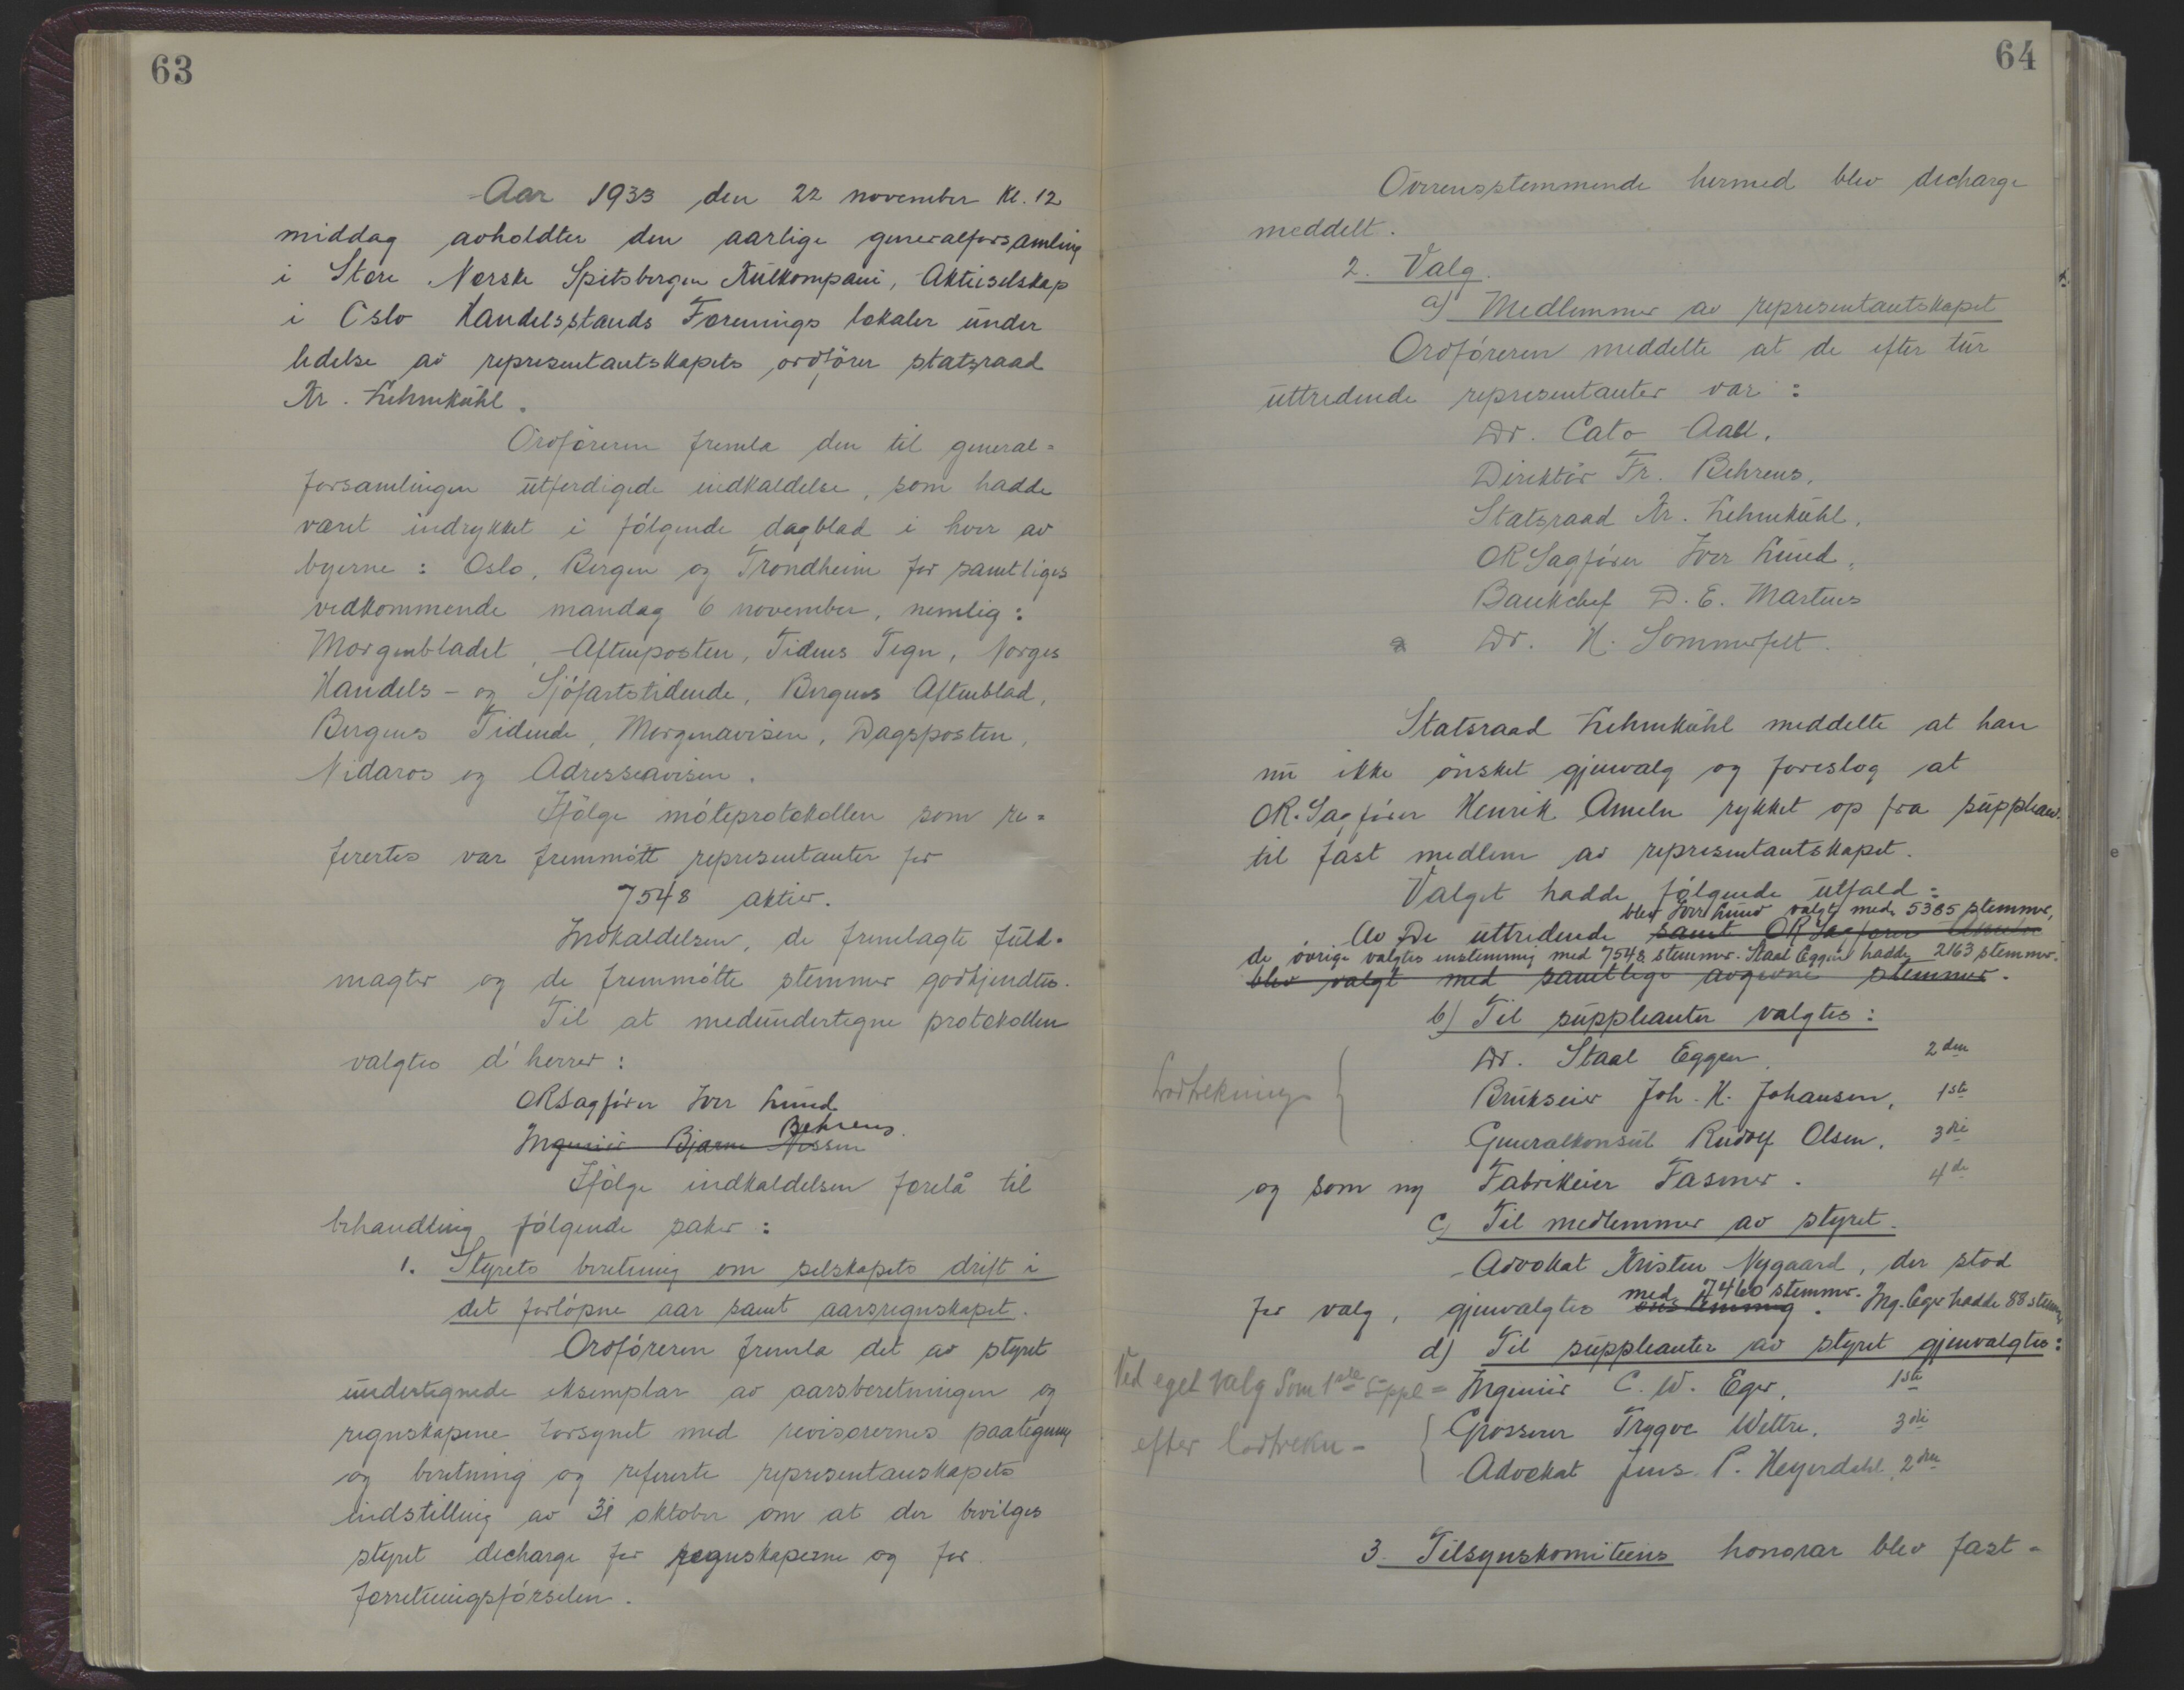 63
Aar 1933 den 22 november Kl. 12
middag avholdtes den aarlige generalforsamling
i Store Norske Spitsbergen Kulkompani, Aktieselskap
i Oslo Handelsstands Forenings lokaler under
ledelse av representantskapets ordfører statsraad
Kr. Lehmkühl.
Ordføreren fremla den til general=
forsamlingen utferdigede indkaldelse, som hadde
været indrykket i følgende dagblad i hver av
byerne: Oslo, Bergen og Trondheim for samtliges
vedkommende mandag 6 november, nemlig:
Morgenbladet, Aftenposten, Tidens Tegn, Norges
Handels- og Sjøfartstidende, Bergens Aftenblad,
Bergens Tidende, Morgenavisen, Dagsposten,
Nidaros og Adresseavisen.
Ifølge møteprotokollen som re=
ferertes var fremmøtt representanter for
7548 aktier.
Indkaldelsen, de fremlagte fuld=
magter og de fremmøtte stemmer godkjendtes.
Til at medundertegne protokollen
valgtes d'herrer:
ORSagfører Iver Lund
Behrens.
Ingeniør Bjarne Nissen
Ifølge indkaldelsen forelå til
behandling følgende saker:
1. Styrets beretning om selskapets drift i
det forløpne aar samt aarsregnskapet.
Ordføreren fremla det av styret
undertegnede eksemplar av aarsberetningen og
regnskapene forsynet med revisorernes paategning
og beretning og refererte representanskapets
indstilling av 31 oktober om at der bevilges
styret decharge for regnskaperne og for
forretningsførselen.
64
Overensstemmende hermed blev decharge
meddelt.
2. Valg.
a) Medlemmer av representantskapet
Ordføreren meddelte at de efter tur
uttredende representanter var:
Dr. Cato Aall,
Direktør Fr. Behrens,
Statsraad Kr. Lehmkühl,
ORSagfører Iver Lund,
Bankchef D. E. Martens
Dr. H. Sommerfelt.
Statsraad Lehmkühl meddelte at han
nu ikke ønsket gjenvalg og foreslog at
OR.Sagfører Henrik Ameln rykket op fra suppleant
til fast medlem av representantskapet.
Valget hadde følgende utfald:
blev Iver Lund valgt med 5385 stemmer,
Av De uttredende samt ORSagfører Ameln
de øvrige valgtes enstemmig med 7548 stemmer. Staal Eggen hadde 2163 stemmer.
blev valgt med samtlige avgivne stemmer.
b) Til suppleanter valgtes:
Dr. Staal Eggen. 2den
Lodtrekning { Brukseier Joh. H. Johansen, 1ste
Generalkonsul Rudolf Olsen. 3die
og som ny Fabrikeier Fasmer. 4de
c) Til medlemmer av styret.
Advokat Kristen Nygaard, der stod
med 7460 stemmer.
for valg, gjenvalgtes enstemmig. Ing. Eger hadde 88 stemmer
d) Til suppleanter av styret gjenvalgtes:
Ved eget valg som 1ste suppl = Ingeniør C. W. Eger. 1ste
efter lodtrekn - { Grosserer Trygve Wettre. 3die
Advokat Jens P. Heyerdahl, 2den
3. Tilsynskomiteens honorar blev fast=